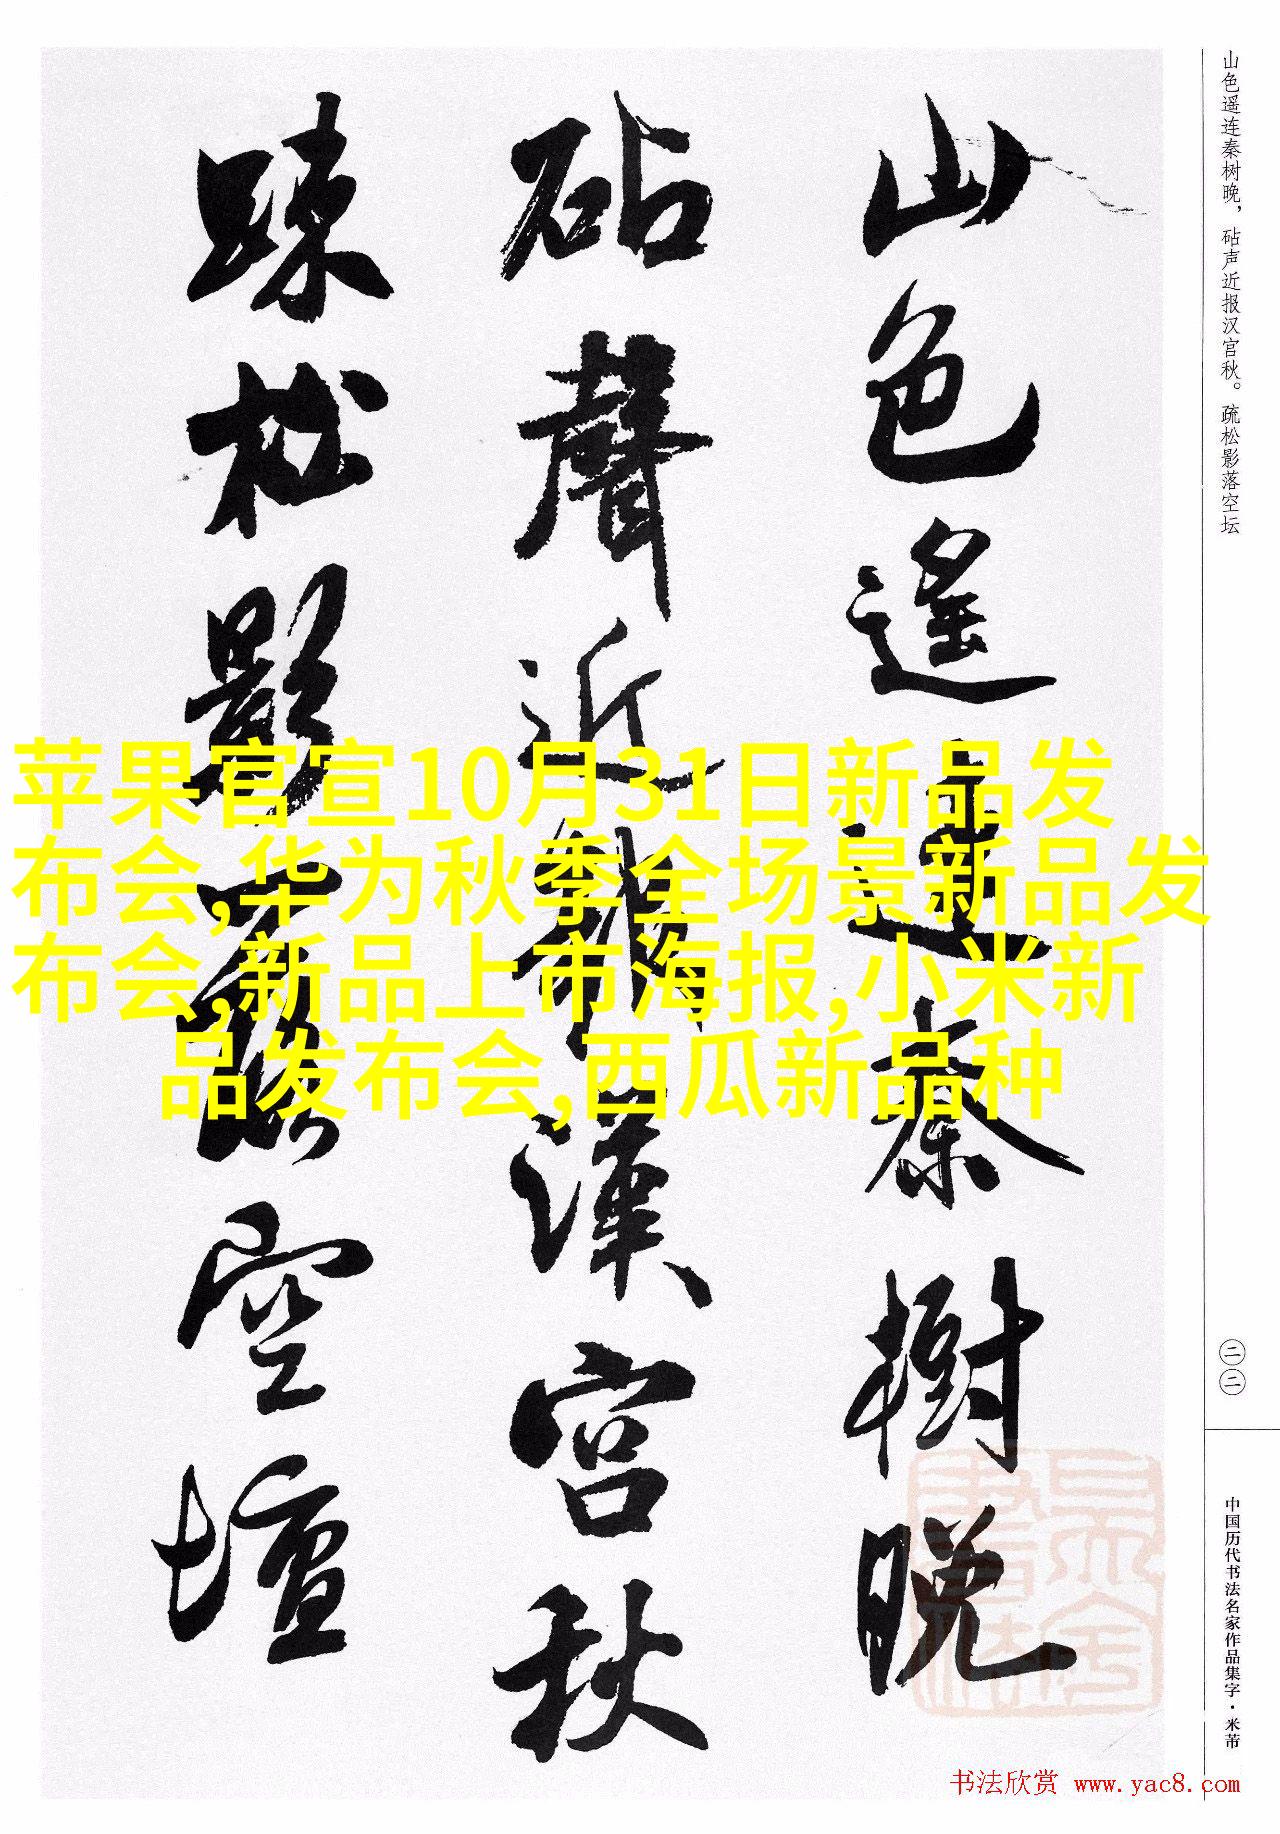 山色遥连秦树晚，砧声近报汉宫秋。疏松影落空坛
山色遙連秦樹晚
砧聲近報漢宮秋
踈松影落空壇
苹果官宣10月31日新品发
布会,华为秋季全场景新品发
布会,新品上市海报,小米新
品发布会,西瓜新品种
二二
中国历代书法名家作品集字·米芾
书法欣赏 www.yac8.com